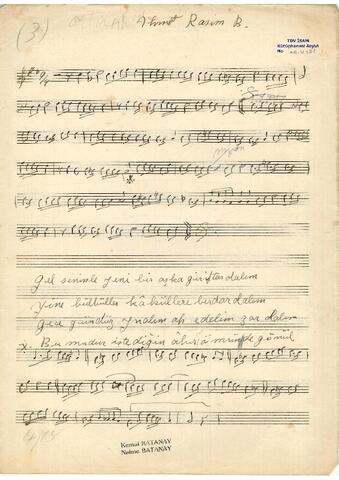 (3) Ahmet Rasim B.
TDV İSAM
Kütüphanesi Arşivi
No
Gel seninle yeni bir aşka giriftar olalım
Yine bülbülles kâküllere berdar olalım
Gece gündüz yanalım ah edelim zar olalım
x. Bu mudur istediğin âhır-ı ömründe gönül
Kemal BATANAY
Naime BATANAY